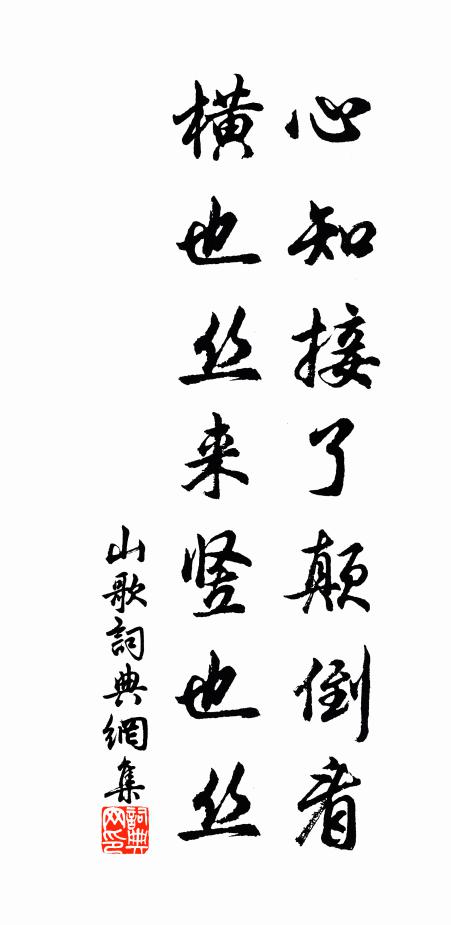 心知接了颠倒看
横也丝来竖也丝
山歌詞典網集
詞典
网印